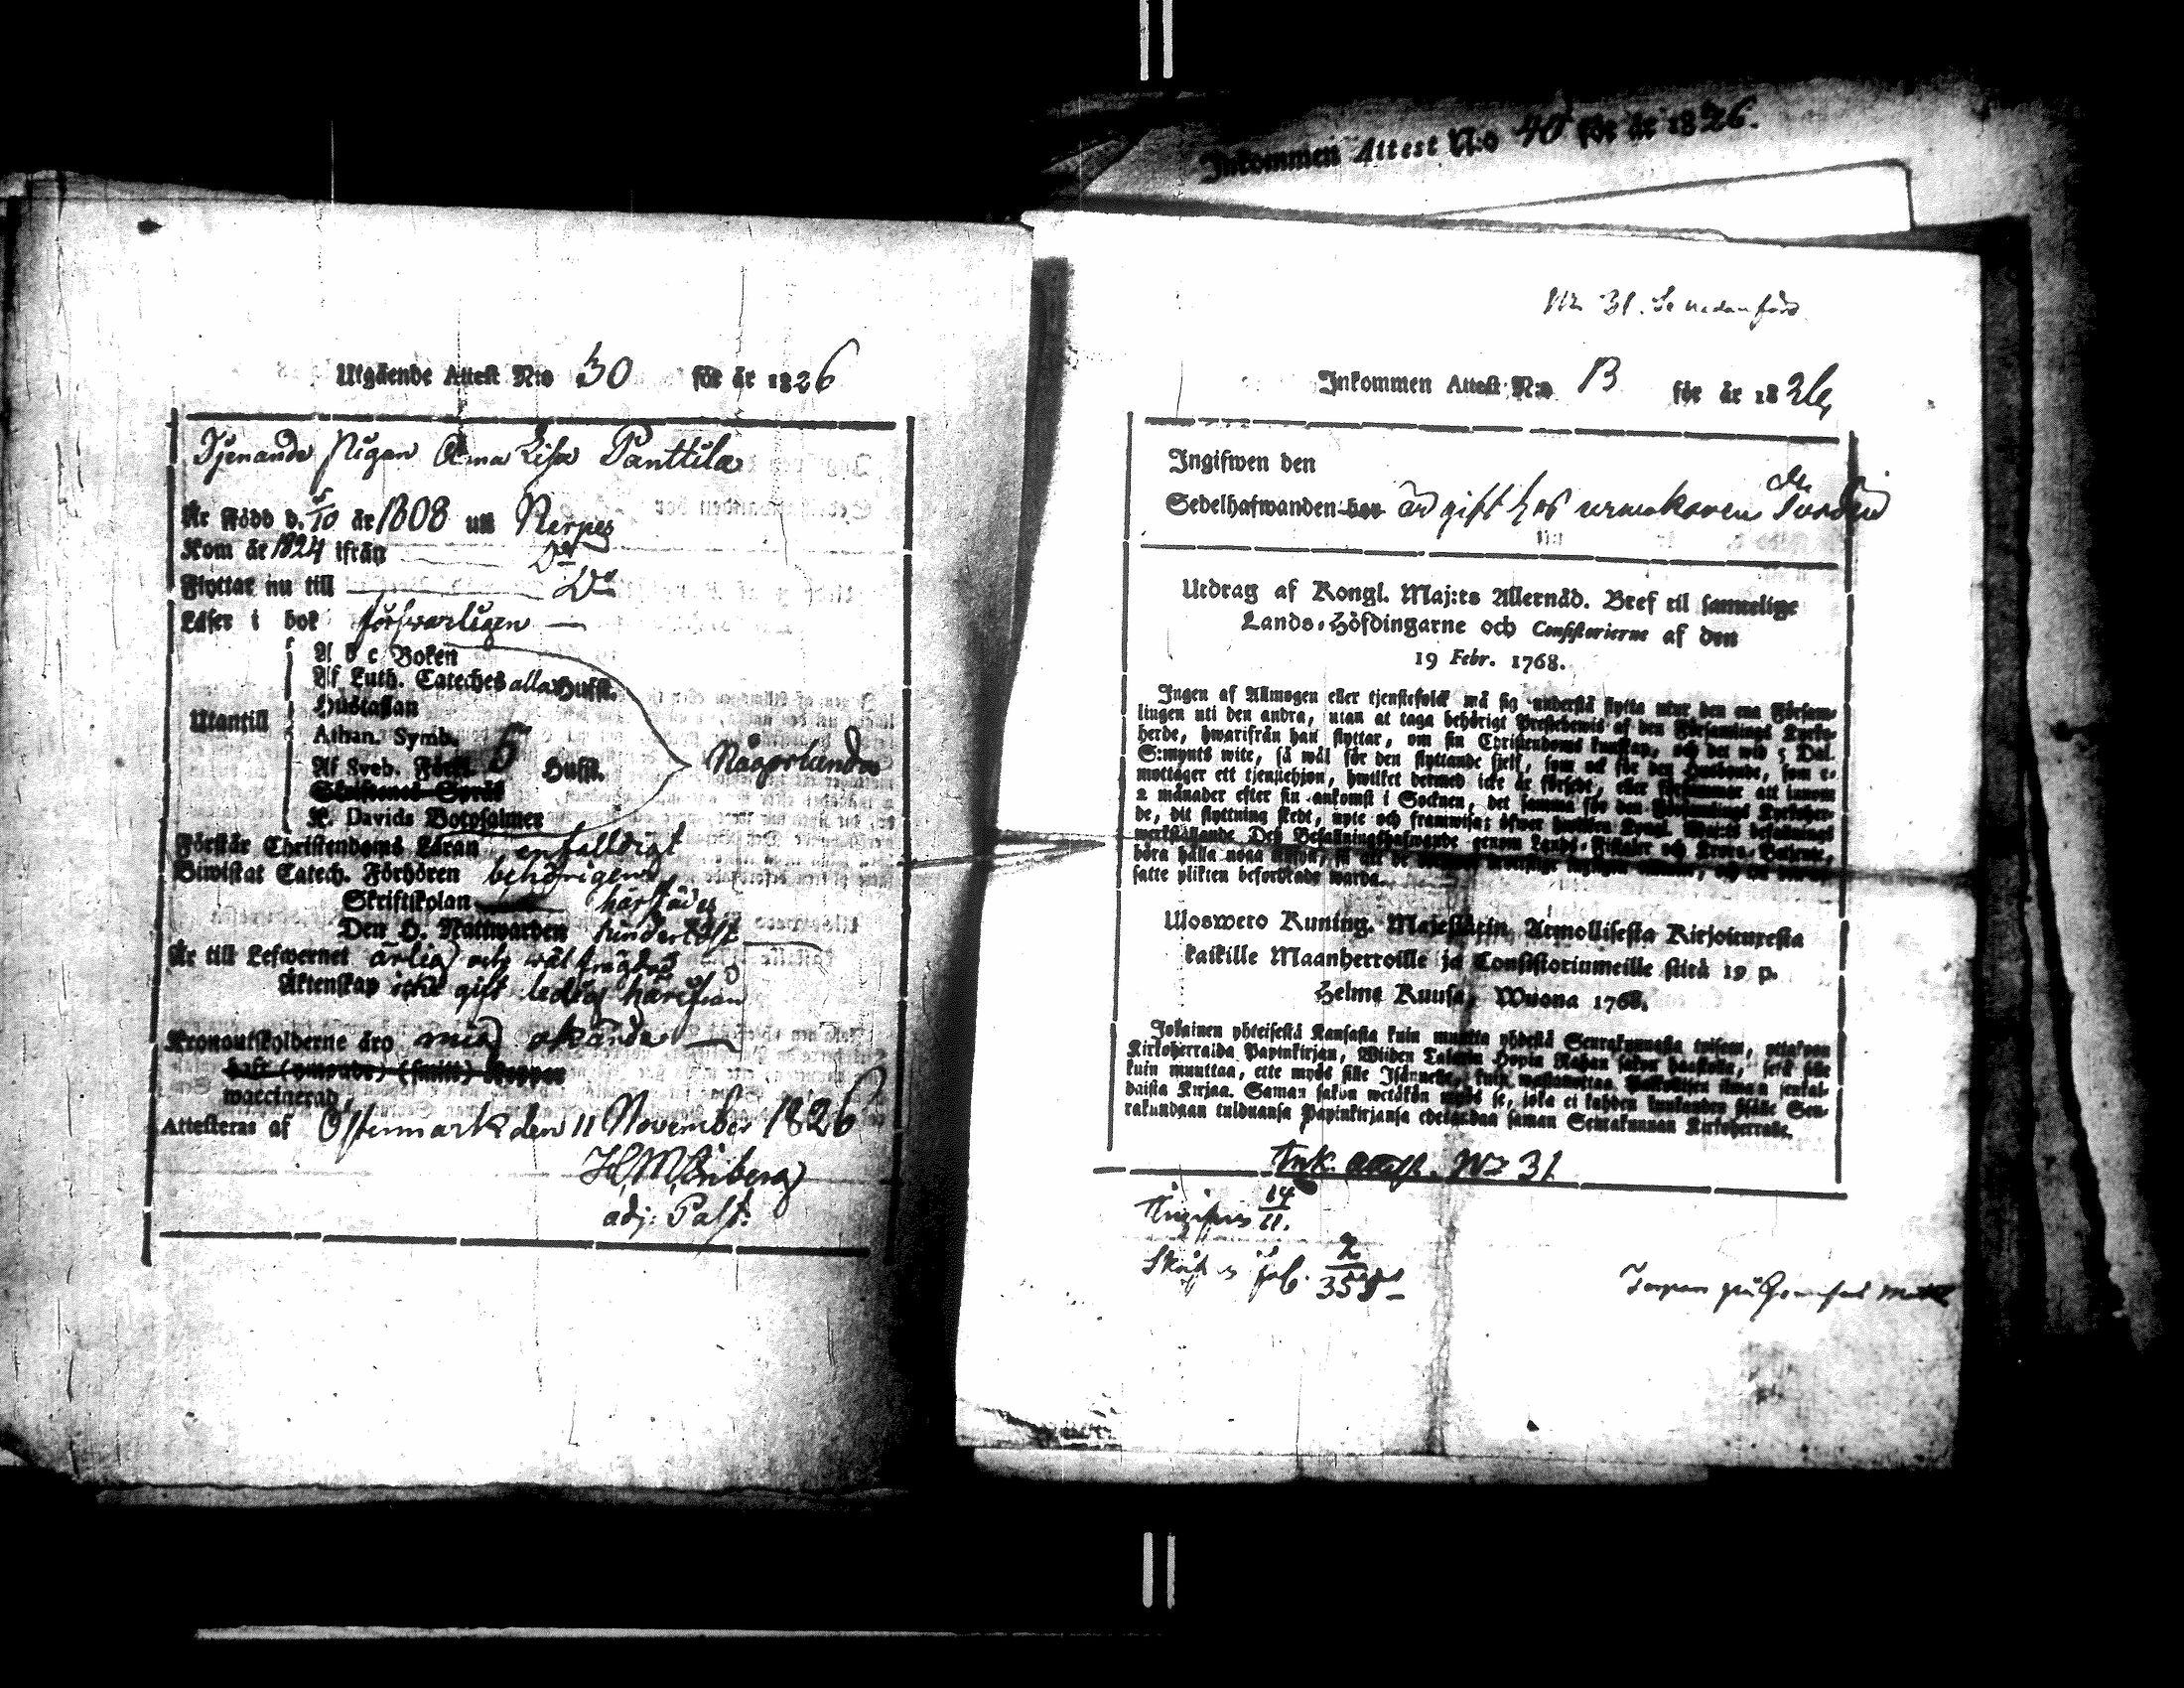 Inkommen Attest N:o 40 för år 1826.
Utgående Attest N:o 30 för år 1826
Tjenande Pigan Anna Lisa Panttila
Är Född d. 5/10 år 1808 uti Nerpes
Kom år 1824 ifrån Do
Flyttar nu till Do
Läser i bok försvarligen
Utantill
A b c Boken
Af Luth. Cateches alla Hufst.
Hustaflan
Athan. Symb.
Af Sveb. Förkl. 5 Hufst.
Skriftenes Språk
K. Davids Botpsalmer
Någorlunda
Förstår Christendoms Läran enfalldigt
Biwistat Catech. Förhören behörigen
Skriftskolan härstädes
Den H. Nattwarden
Är till Lefwernet ärlig och wäl
Äktenskap icke gift ledig härifrån
Kronoutskylderne äro mig okände
haft (ympade) (smitt) Koppor
waccinerad,
Attesteras af Östermark den 11 November 1826
adj: Past.
Nr 31. Se nedanföre
Inkommen Attest N:o 13 för år 1826
Ingifwen den
Sedelhafwanden bor är gift hos
Utdrag af Kongl. Maj:ts Allernåd. Bref til samtelige
Lands-Höfdingarne och Consistorierne af den
19 Febr. 1768.
Ingen af Allmogen eller tjenstefolck må sig understå flytta utur den ena Försam-
lingen uti den andra, utan at taga behörigt Prestebewis af den Församlings Kyrko-
herde, hwarifrån han flyttar, om sin Christendoms kunskap, och det wid 5 Dal.
S:mynts wite, så wäl för den flyttande sjelf, som ock för den Husbonde, som e-
mottager ett tjenstehjon, hwilket dermed icke är försedt, eller försummar att innom
2 månader efter sin ankomst i Socknen, det samma för den Församlings Kyrkoher-
de, dit flyttning skedt, upte och framwisa; öfwer hwilken Kongl. Maj:ts befallnings
werkställande Dess Befallningshafwande genom Lands-Fiskaler och Krono-Betjente,
böra hålla noga
satte plikten befordrade warda.
Uloswero Kuning. Majestätin Armollisesta Kirjoituxesta
kaikille Maanherroille ja Consistoriumeille siitä 19 p.
Helme Kuusa, Wuona 1768.
Jokainen yhteisestä Kansasta kuin muutta yhdestä Seurakunnasta toiseen, ottakoon
Kirkoherralda Papinkirjan, Wiiden Talarin Hopia Rahan sakon haastolla, sekä sille
kuin muuttaa, ette myös sille Isännelle, kuin wastanottaa Palkollisen ilman senkal-
daista Kirjaa. Saman sakon wetäkön myös se, joka ei kahden kuukauden sisälle Seu-
rakundaan tulduansa Papinkirjansa edeskandaa saman Seurakunnan Kirkoherralle.
Ink. attest. Nr 31
Ingifven 14/11.